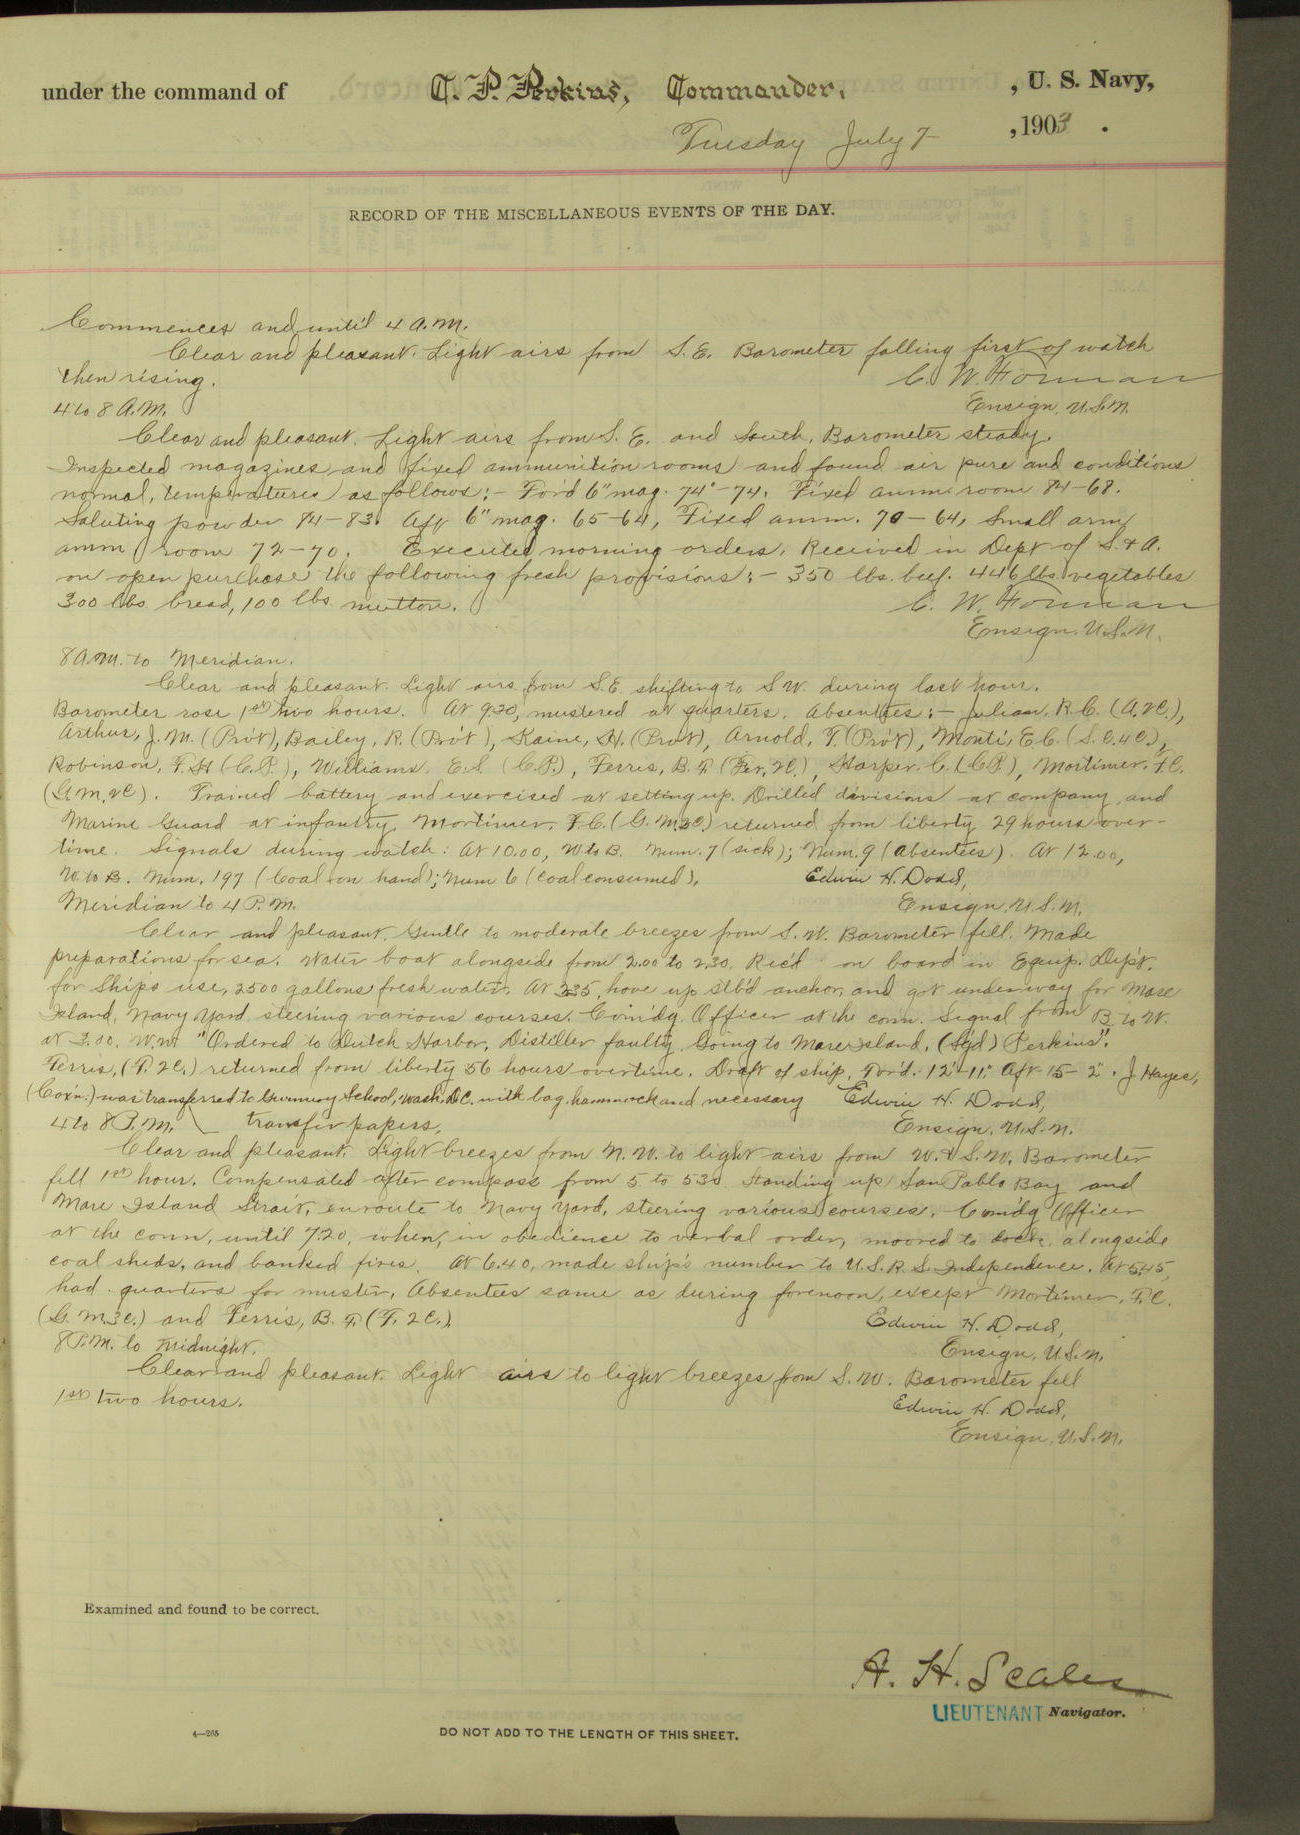 under the command of C. P. Perkins, Commander, , U. S. Navy,
Tuesday July 7 , 1903 .
RECORD OF THE MISCELLANEOUS EVENTS OF THE DAY.
Commences and until 4 A.M.
Clear and pleasant. Light airs from S. E. Barometer falling first of watch
then rising. C. W. Forman
4 to 8 A.M. Ensign, U.S.N.
Clear and pleasant. Light airs from S. E. and South. Barometer steady.
Inspected magazines and fixed ammunition rooms and found air pure and conditions
normal, temperatures as follows:- For'd 6" mag. 74°-74. Fixed ammn room 84-68.
Saluting powder 84-83. Aft 6" mag. 65-64, Fixed amm. 70-64, Small arm
amm room 72-70. Executed morning orders. Received in Dept of S. & A.
on open purchase the following fresh provisions:- 350 lbs. beef. 446 lbs. vegetables
300 lbs bread, 100 lbs mutton. C. W. Forman
Ensign, U.S.N.
8 A.M. to Meridian.
Clear and pleasant. Light airs from S.E. shifting to S.W. during last hour.
Barometer rose 1st two hours. At 9.30, mustered at quarters. Absentees:- Julian, R. C. (A. 2C.),
Arthur, J. M. (Priv't), Bailey, R. (Priv't), Kaine, H. (Priv't), Arnold, T. (Priv't), Monti, E.C. (S.C. 4C.),
Robinson, F. H (C.P.), Williams. E. S. (C.P.), Ferris, B. F. (Fir. 2C.), Harper. C. (C.P.), Mortimer. F.C.
(G.M. 2C). Trained battery and exercised at setting up. Drilled divisions at company, and
Marine Guard at infantry. Mortimer, F.C. (G. M. 3C.) returned from liberty 29 hours over-
time. Signals during watch: At 10.00, W to B. Num. 7 (sick); Num. 9 (absentees). At 12.00,
W to B. Num. 197 (Coal on hand); Num 6 (coal consumed). Edwin H. Dodd,
Meridian to 4 P.M. Ensign, U.S.N.
Clear and pleasant. Gentle to moderate breezes from S. W. Barometer fell. Made
preparations for sea. Water boat alongside from 2.00 to 2.30. Rec'd on board in Equip. Dep't.
for Ships use, 2500 gallons fresh water. At 2.35, hove up stb'd anchor, and got underway for Mare
Island, Navy Yard, steering various courses. Com'dg. Officer at the conn. Signal from B. to W.
at 3.00. W.W. "Ordered to Dutch Harbor, Distiller faulty. Going to Mare Island. (Sg'd) Perkins".
Ferris, (F. 2C.) returned from liberty 56 hours overtime. Draft of ship, For'd. 12'-11". Aft 15'-2". J Hayes,
(Cox'n.) was transferred to Gunnery School, Wash., D.C. with bag, hammock and necessary Edwin H. Dodd,
4 to 8 P.M. transfer papers. Ensign, U.S.N.
Clear and pleasant. Light breezes from N. W. to light airs from W. & S.W. Barometer
fell 1st hour. Compensated after compass from 5 to 5.30 Standing up San Pablo Bay and
Mare Island Strait, enroute to Navy Yard, steering various courses. Com'dg Officer
at the conn, until 7.20, when, in obedience to verbal order, moored to dock alongside
coal sheds, and banked fires. At 6.40, made ship's number to U.S.R.S. Independence. At 5.45,
had quarters for muster. Absentees same as during forenoon, except Mortimer, F.C.
(G. M. 3C.) and Ferris, B. F. (F. 2C.) Edwin H. Dodd,
8 P.M. to Midnight. Ensign, U.S.N.
Clear and pleasant. Light airs to light breezes from S. W. Barometer fell
1st two hours. Edwin H. Dodd,
Ensign, U.S.N.
Examined and found to be correct.
A. H. Scales
LIEUTENANT Navigator.
4—265 DO NOT ADD TO THE LENGTH OF THIS SHEET.